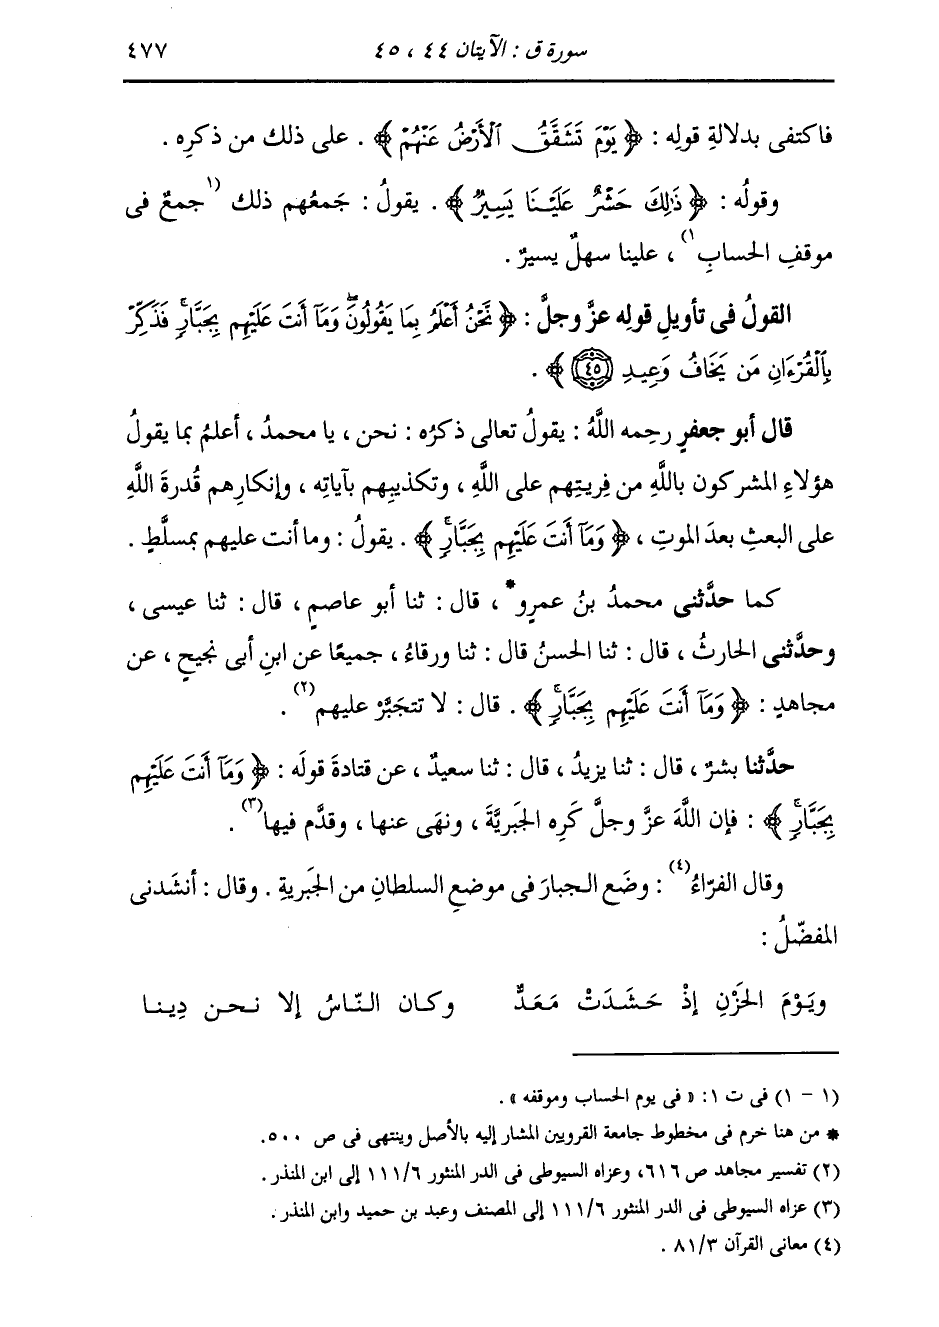 سورة ق : الآيتان ٤٤ ، ٤٥ ٤٧٧
فاكتفى بدلالةِ قولِه : ﴿ يَوْمَ تَشَقَّقُ الْأَرْضُ عَنْهُمْ ﴾ . على ذلك من ذكرِه .
وقولُه : ﴿ ذَٰلِكَ حَشْرٌ عَلَيْنَا يَسِيرٌ ﴾ . يقولُ : جَمعُهم ذلك (١ جمعٌ فى
موقفِ الحسابِ ١) ، علينا سهلٌ يسيرٌ .
القولُ فى تأويلِ قولِه عزَّ وجلَّ : ﴿ نَّحْنُ أَعْلَمُ بِمَا يَقُولُونَ ۖ وَمَآ أَنتَ عَلَيْهِم بِجَبَّارٍ ۖ فَذَكِّرْ
بِٱلْقُرْءَانِ مَن يَخَافُ وَعِيدِ ٤٥ ﴾ .
قال أبو جعفرٍ رحِمه اللَّهُ : يقولُ تعالى ذكرُه : نحن ، يا محمدُ ، أعلمُ بما يقولُ
هؤلاءِ المشركون باللَّهِ من فِريتِهم على اللَّهِ ، وتكذيبِهم بآياتِه ، وإنكارِهم قُدرةَ اللَّهِ
على البعثِ بعدَ الموتِ ، ﴿ وَمَآ أَنتَ عَلَيْهِم بِجَبَّارٍ ۖ ﴾ . يقولُ : وما أنت عليهم بمسلَّطٍ .
كما حدَّثنى محمدُ بنُ عمرٍو* ، قال : ثنا أبو عاصمٍ ، قال : ثنا عيسى ،
وحدَّثنى الحارثُ ، قال : ثنا الحسنُ قال : ثنا ورقاءُ ، جميعًا عن ابنِ أبى نجيحٍ ، عن
مجاهدٍ : ﴿ وَمَآ أَنتَ عَلَيْهِم بِجَبَّارٍ ۖ ﴾ . قال : لا تتجَبَّرْ عليهم(٢) .
حدَّثنا بشرٌ ، قال : ثنا يزيدُ ، قال : ثنا سعيدٌ ، عن قتادةَ قولَه : ﴿ وَمَآ أَنتَ عَلَيْهِم
بِجَبَّارٍ ۖ ﴾ : فإن اللَّهَ عزَّ وجلَّ كَرِه الجَبريَّةَ ، ونهَى عنها ، وقدَّم فيها(٣) .
وقال الفرّاءُ(٤) : وضَع الجبارَ فى موضعِ السلطانِ من الجَبريةِ . وقال : أنشَدنى
المفضّلُ :
ويَوْمَ الحَزْنِ إذْ حَشَدَتْ مَعَدٌّ وكان النّاسُ إلا نحن دِينا
(١ - ١) فى ت ١ : « فى يوم الحساب وموقفه » .
* من هنا خرم فى مخطوط جامعة القرويين المشار إليه بالأصل وينتهى فى ص ٥٠٠ .
(٢) تفسير مجاهد ص ٦١٦ ، وعزاه السيوطى فى الدر المنثور ٦/١١١ إلى ابن المنذر .
(٣) عزاه السيوطى فى الدر المنثور ٦/١١١ إلى المصنف وعبد بن حميد وابن المنذر .
(٤) معانى القرآن ٣/٨١ .